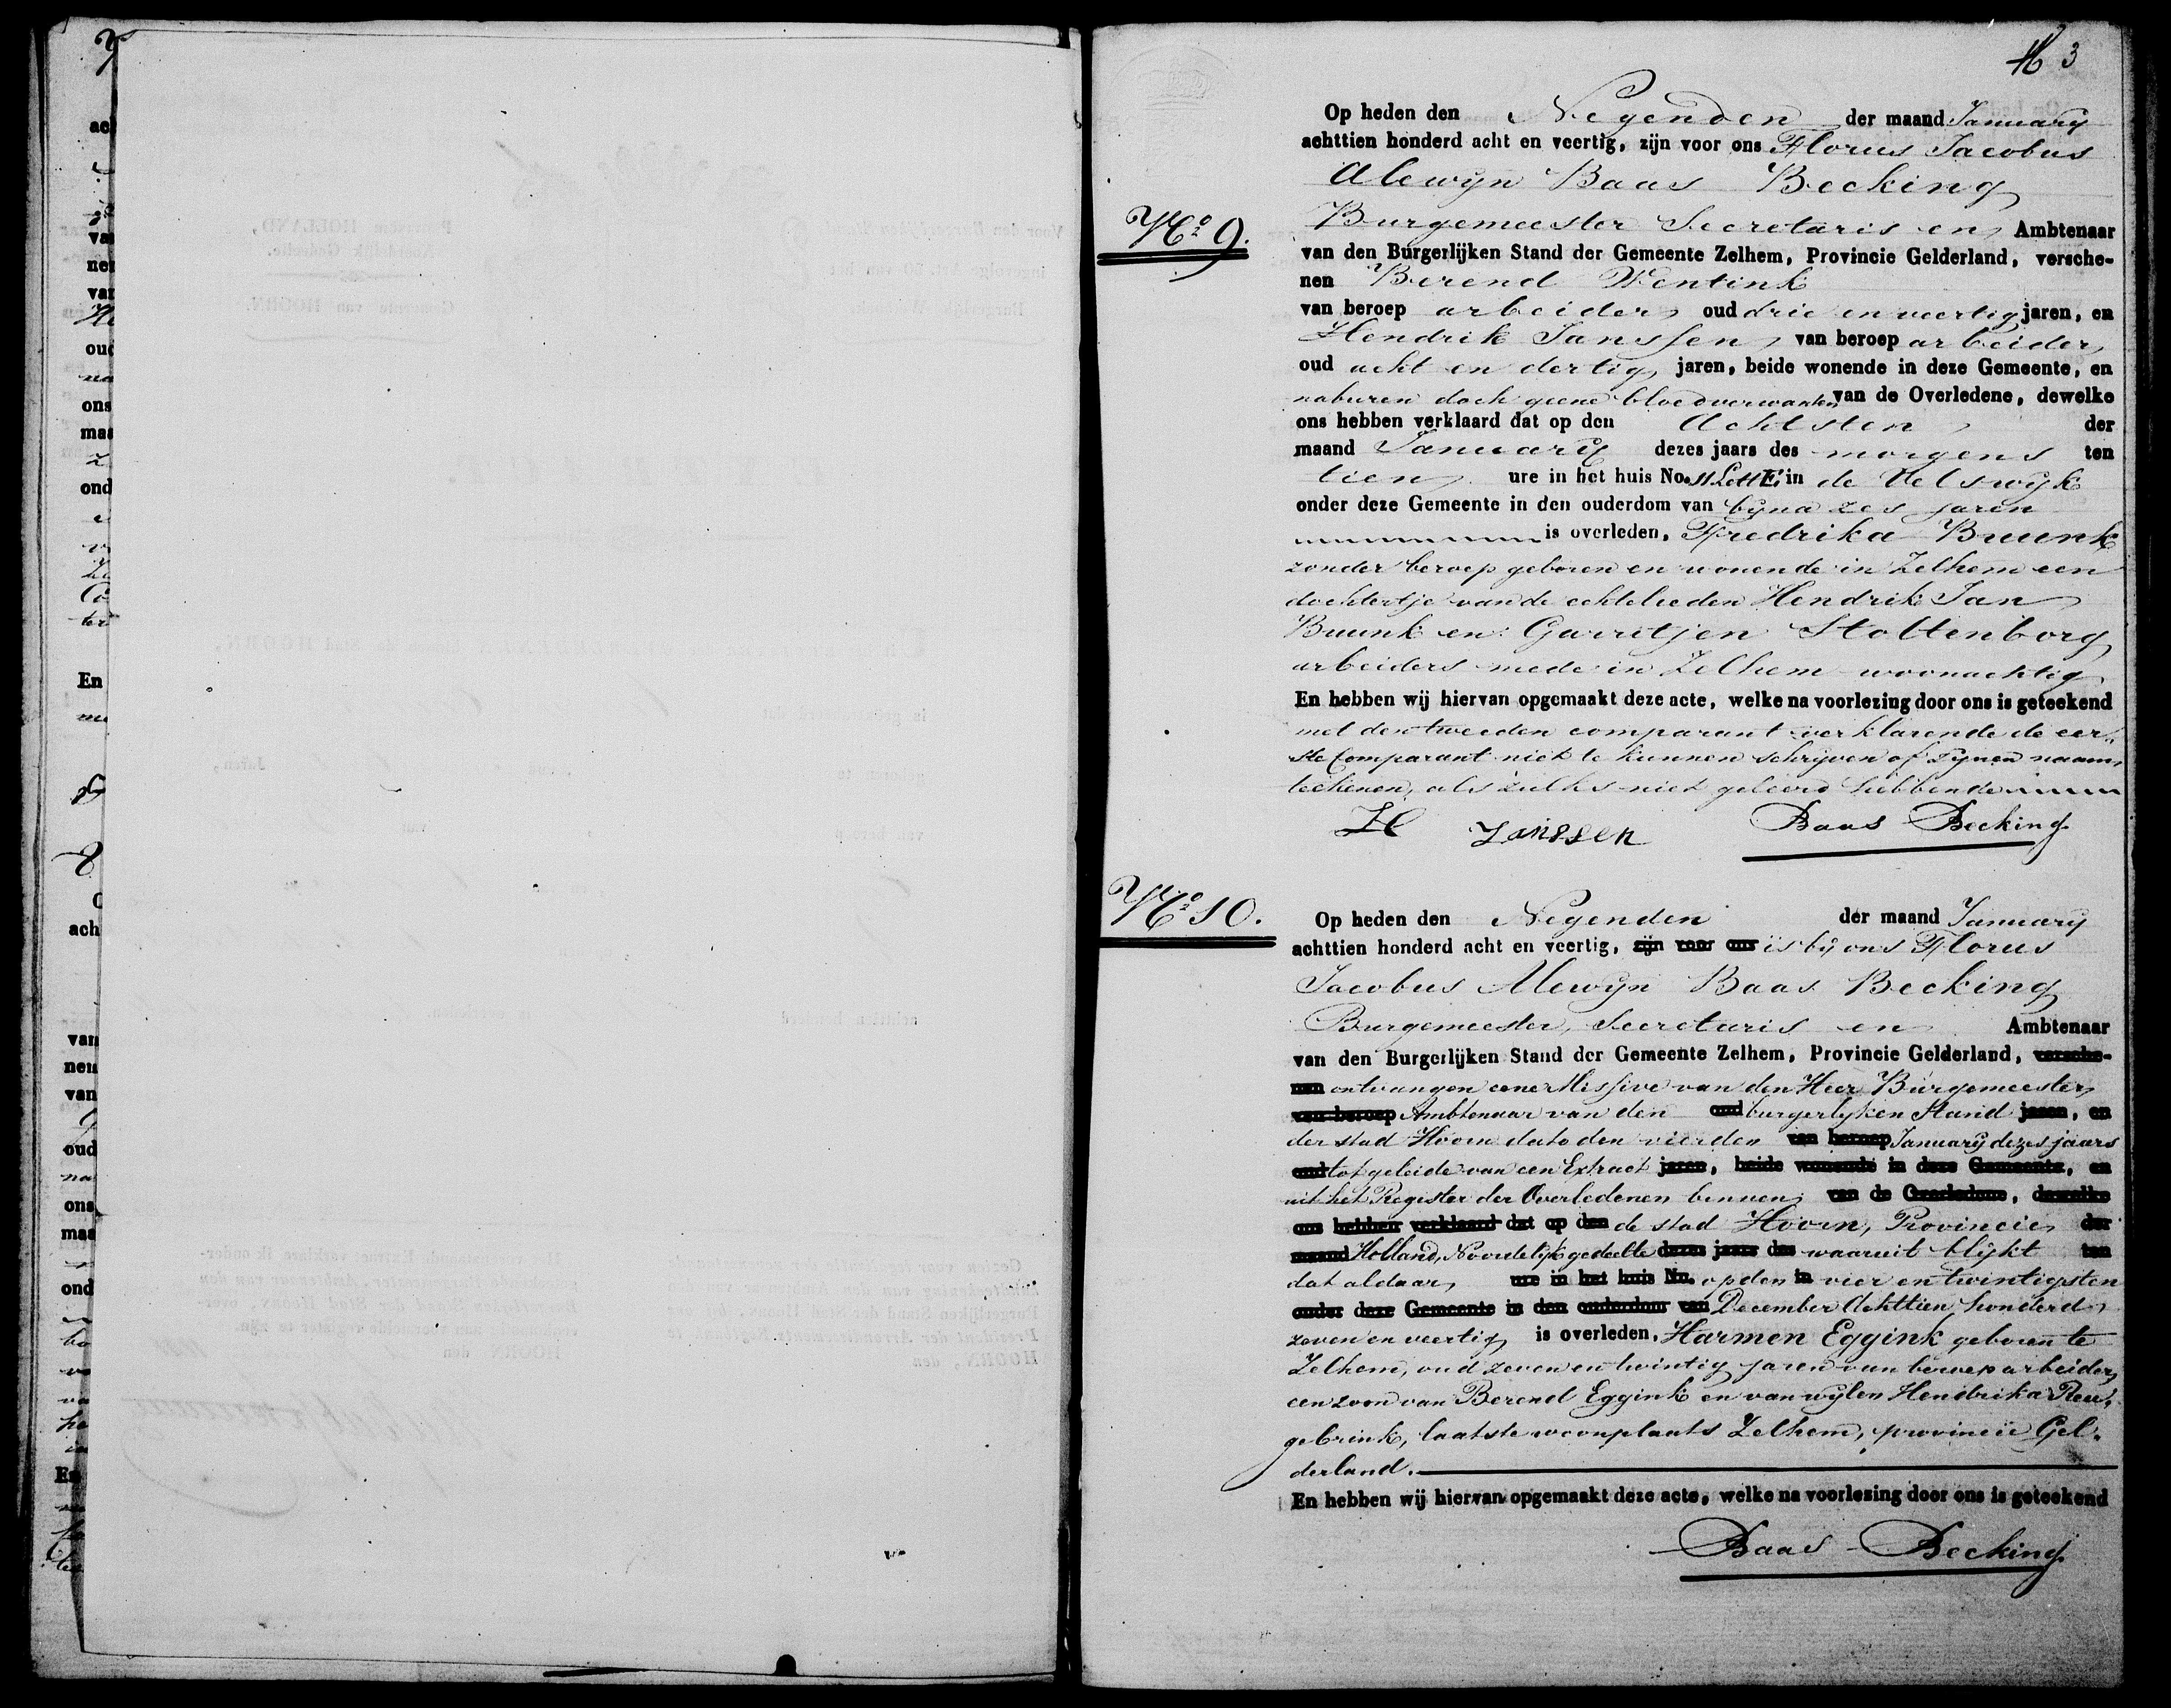 3
Op heden den Negenden der maand January
achttien honderd acht en veertig, zijn voor ons Florus Jacobus
Alewijn Baas Becking
No 9.
Burgemeester Secretaris en Ambtenaar
van den Burgerlijken Stand der Gemeente Zelhem, Provincie Gelderland, versche-
nen Berend Wentink
van beroep arbeider oud drie en veertig jaren, en
Hendrik Janssen, van beroep arbeider
oud acht en dertig jaren, beide wonende in deze Gemeente, en
naburen doch geene bloedverwanten van de Overledene, dewelke
ons hebben verklaard dat op den Achtsten der
maand January dezes jaars des morgens ten
tien ure in het huis No. 11 Lett E, in de Velswijk
onder deze Gemeente in den ouderdom van byna zes jaren
is overleden, Fredrika Buunk
zonder beroep geboren en wonende in Zelhem een
dochtertje van de echtelieden Hendrik Jan
Buunk en Garritjen Stoltenborg
arbeiders mede in Zelhem woonachtig
En hebben wij hiervan opgemaakt deze acte, welke na voorlezing door ons is geteekend
met den tweeden comparant verklarende de eer-
ste Comparant niet te kunnen schrijven of zynen naam
teekenen, als zulks niet geleerd hebbende
H Janssen Baas Becking
No 10.
Op heden den Negenden der maand January
achttien honderd acht en veertig, zijn voor ons is by ons Florus
Jacobus Alewijn Baas Becking
Burgemeester, Secretaris en Ambtenaar
van den Burgerlijken Stand der Gemeente Zelhem, Provincie Gelderland, versche-
nen ontvangen eene Missive van den Heer Burgemeester
van beroep Ambtenaar van den oud burgerlyken Stand jaren, en
der stad Hoorn dato den vierden van beroep January dezes jaars
oud tot geleide van een Extract jaren, beide wonende in deze Gemeente, en
uit het Register der Overledenen binnen van de Overledene, dewelke
ons hebben verklaard dat op den de stad Hoorn, Provincie der
maand Holland, Noordelijk gedeelte dezes jaars des waaruit blijkt ten
dat aldaar, ure in het huis No. op den in vier en twintigsten
onder deze Gemeente in den ouderdom van December Achttien honderd
zeven en veertig is overleden, Harmen Eggink geboren te
Zelhem, oud zeven en twintig jaren van beroep arbeider
een zoon van Berend Eggink en van wylen Hendrika Reu-
gebrink, laatste woonplaats Zelhem, provincie Gel-
derland.
En hebben wij hiervan opgemaakt deze acte, welke na voorlezing door ons is geteekend
Baas Becking